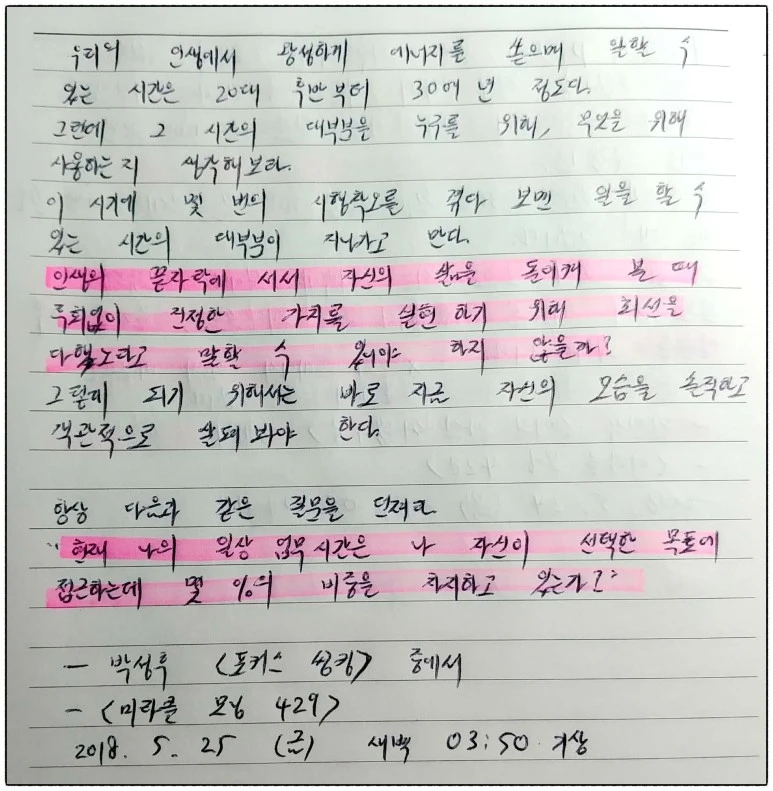 우리의 인생에서 왕성하게 에너지를 쏟으며 일할 수
있는 시간은 20대 후반부터 30여 년 정도다.
그런데 그 시간의 대부분을 누구를 위해, 무엇을 위해
사용하는지 생각해보라.
이 시기에 몇 번의 시행착오를 겪다 보면 일을 할 수
있는 시간의 대부분이 지나가고 만다.
인생의 끝자락에 서서 자신의 삶을 돌이켜 볼 때
후회없이 진정한 가치를 실현하기 위해 최선을
다했노라고 말할 수 있어야 하지 않을까?
그렇게 되기 위해서는 바로 지금 자신의 모습을 솔직하고
객관적으로 살펴봐야 한다.
항상 다음과 같은 질문을 던져라.
"현재 나의 일상 업무시간은 나 자신이 선택한 목표에
접근하는데 몇 %의 비중을 차지하고 있는가?"
- 박성후 <포커스 씽킹> 중에서
- <미라클 모닝 429>
2018. 5. 25 (금) 새벽 03:50 기상